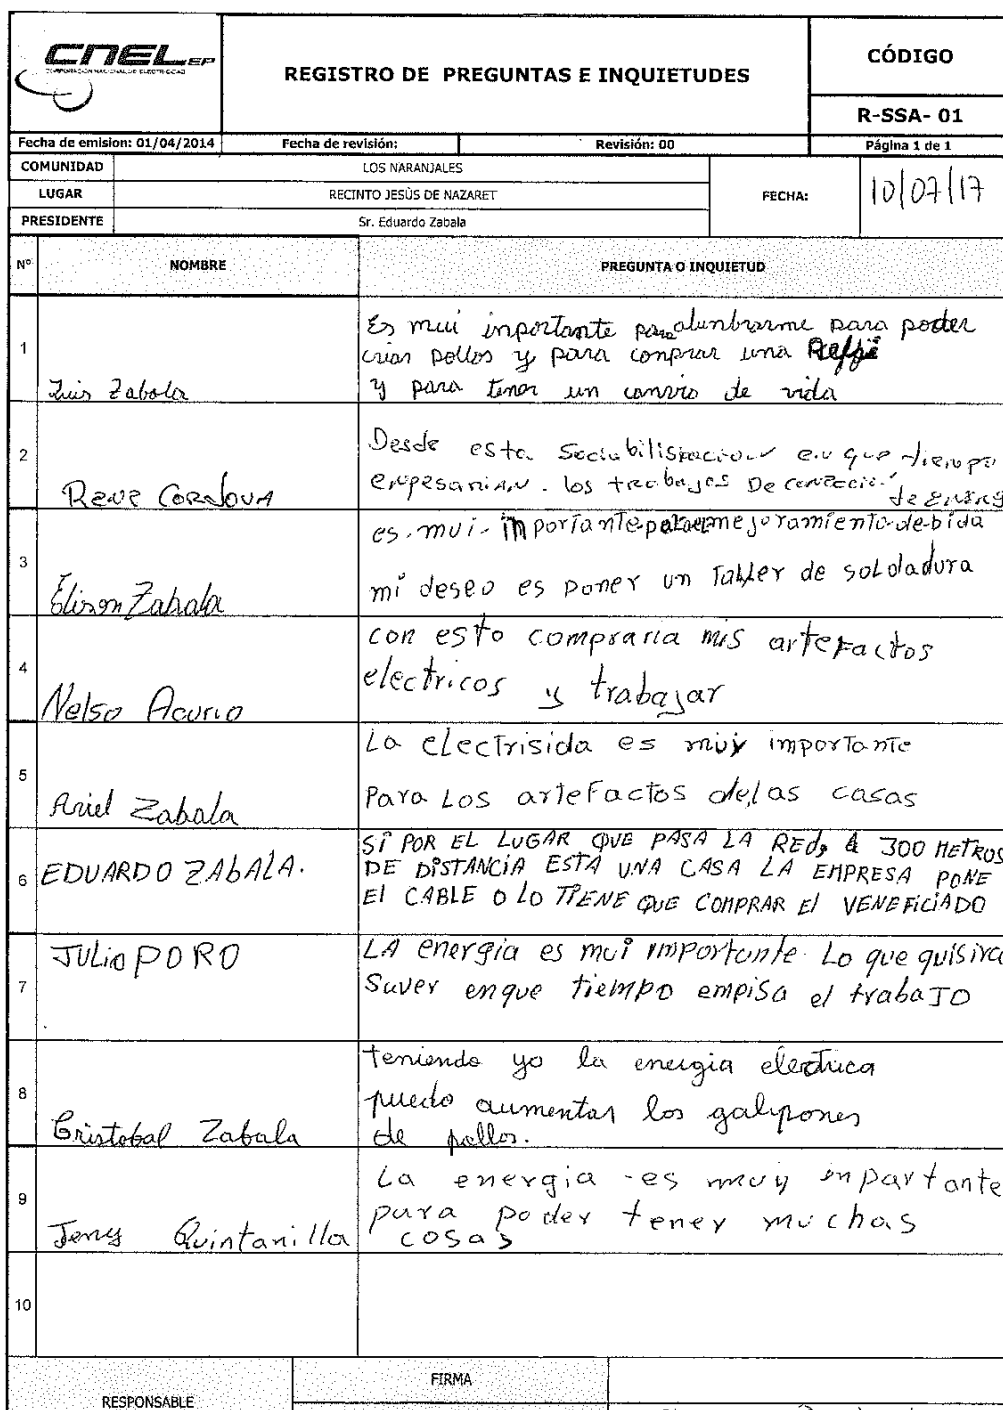 CNEL EP
CORPORACIÓN NACIONAL DE ELECTRICIDAD
REGISTRO DE PREGUNTAS E INQUIETUDES
CÓDIGO
R-SSA- 01
Fecha de emision: 01/04/2014 Fecha de revisión: Revisión: 00 Página 1 de 1
COMUNIDAD LOS NARANJALES
LUGAR RECINTO JESÙS DE NAZARET
PRESIDENTE Sr. Eduardo Zabala
FECHA: 10/07/17
Nº NOMBRE PREGUNTA O INQUIETUD
1 Luis Zabala
Es mui inportante para alunbrarme para poder
crias pollos y para conprar una
y para tener un canvio de vida
2 Rene Cordova
Desde esta en que tiempo
enpesarian. los trabajos De
3 Elison Zabala
es. mui. importante para mejoramiento de bida
mi deseo es poner un Taller de soldadura
4 Nelso Acurio
con esto compraria mis artefactos
electricos y trabajar
5 Ariel Zabala
La electrisida es muy importante
Para Los arteFactos de las casas
6 EDUARDO ZABALA.
SI POR EL LUGAR QUE PASA LA REd, A 300 METROS
DE DISTANCIA ESTA UNA CASA LA EMPRESA PONE
El CABLE O LO TIENE QUE COMPRAR El VENEFICIADO
7 JULio PORO
LA energia es mui importante. Lo que quisira
Saver en que tiempo empisa el trabaJO
8 Cristobal Zabala
teniendo yo la energia electrica
puedo aumentar los galpones
de pollos.
9 Jeny Quintanilla
La energia es muy inpartante
para poder tener muchas
cosas
10
RESPONSABLE
FIRMA